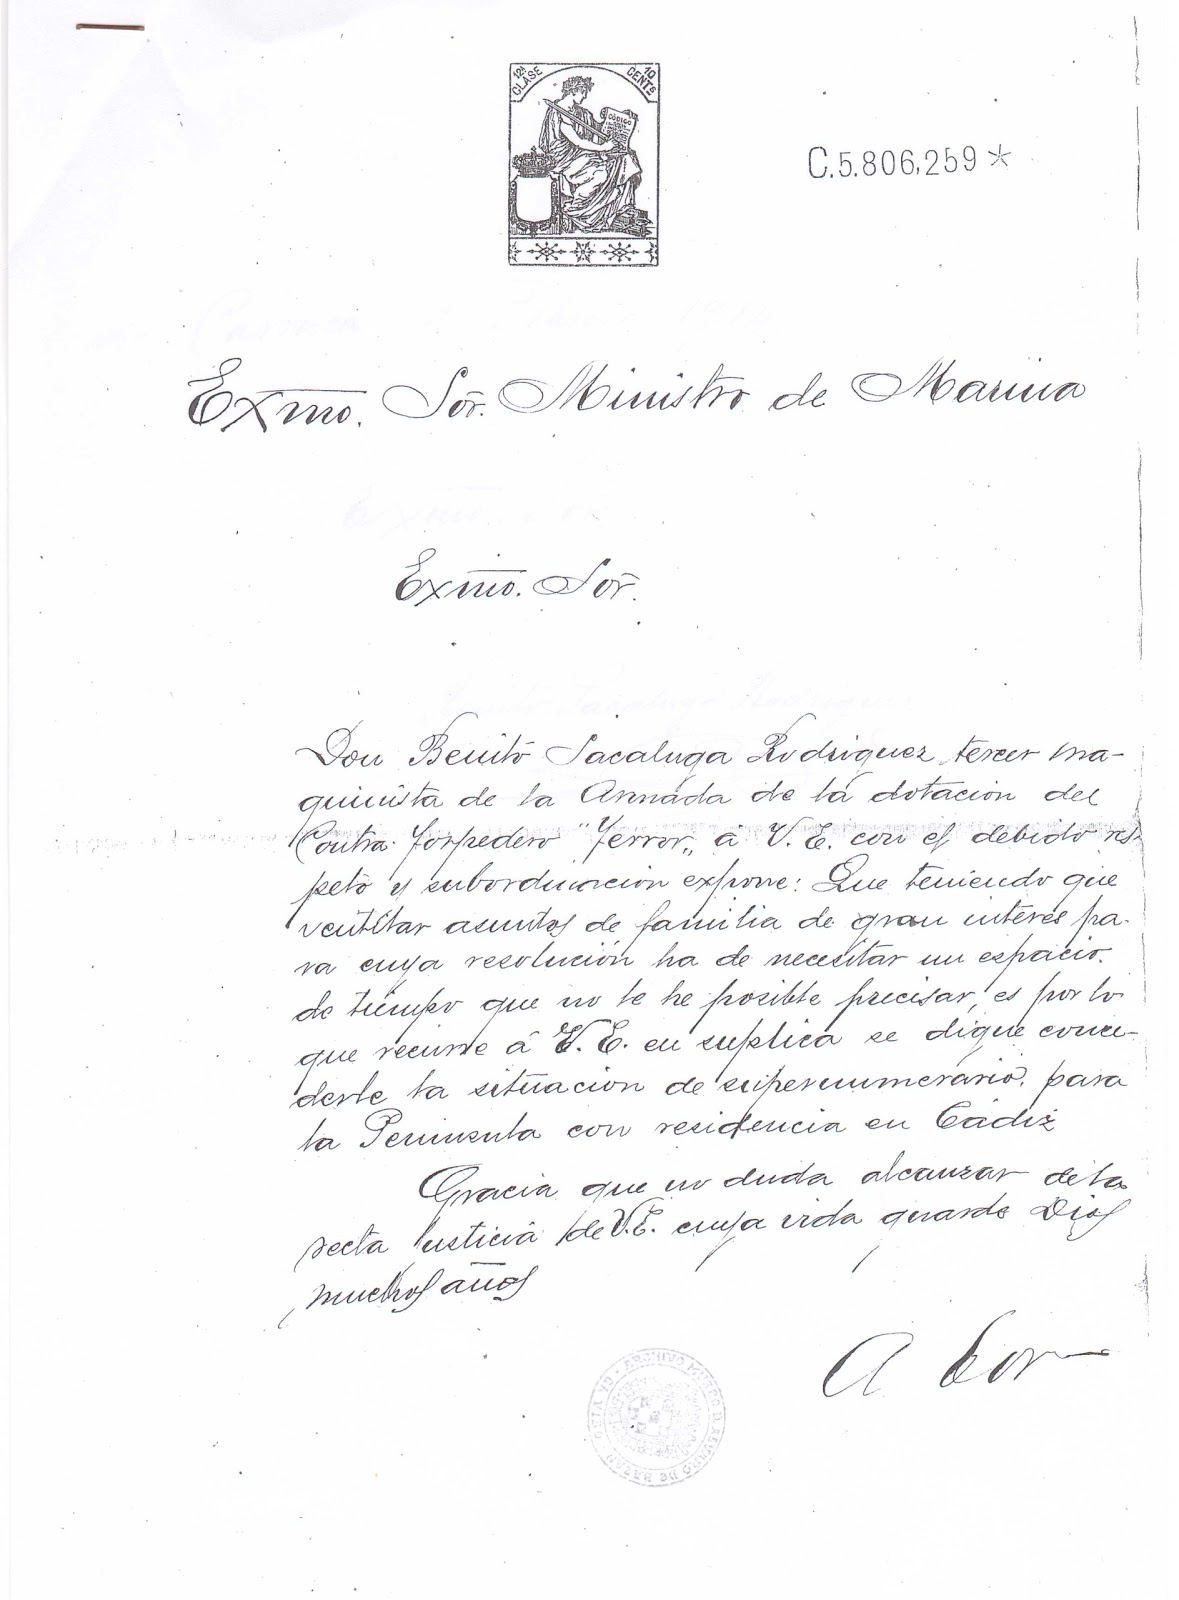 12ª CLASE
10 CENTS
CÓDIGO
C.5.806,259 *
Exmo. Soñr. Ministro de Marina
Exmo. Soñr.
Don Benito Sacaluga Rodriguez, tercer ma-
quinista de la Armada de la dotacion del
Contra-Torpedero "Terror„ á V.E. con el debido res-
peto y subordinacion expone: Que teniendo que
ventitar asuntos de familia de gran interés pa-
ra cuya resolución ha de necesitar un espacio
de tiempo que no le he posible precisar, es por lo
que recurre á V.E. en suplica se digne conce-
derle la situacion de supernumerario para
la Peninsula con residencia en Cádiz
Gracia que no duda alcanzar de la
recta justicia de V.E. cuya vida guarde Dios
muchos años
ARCHIVO MUSEO D. ALVARO DE BAZAN